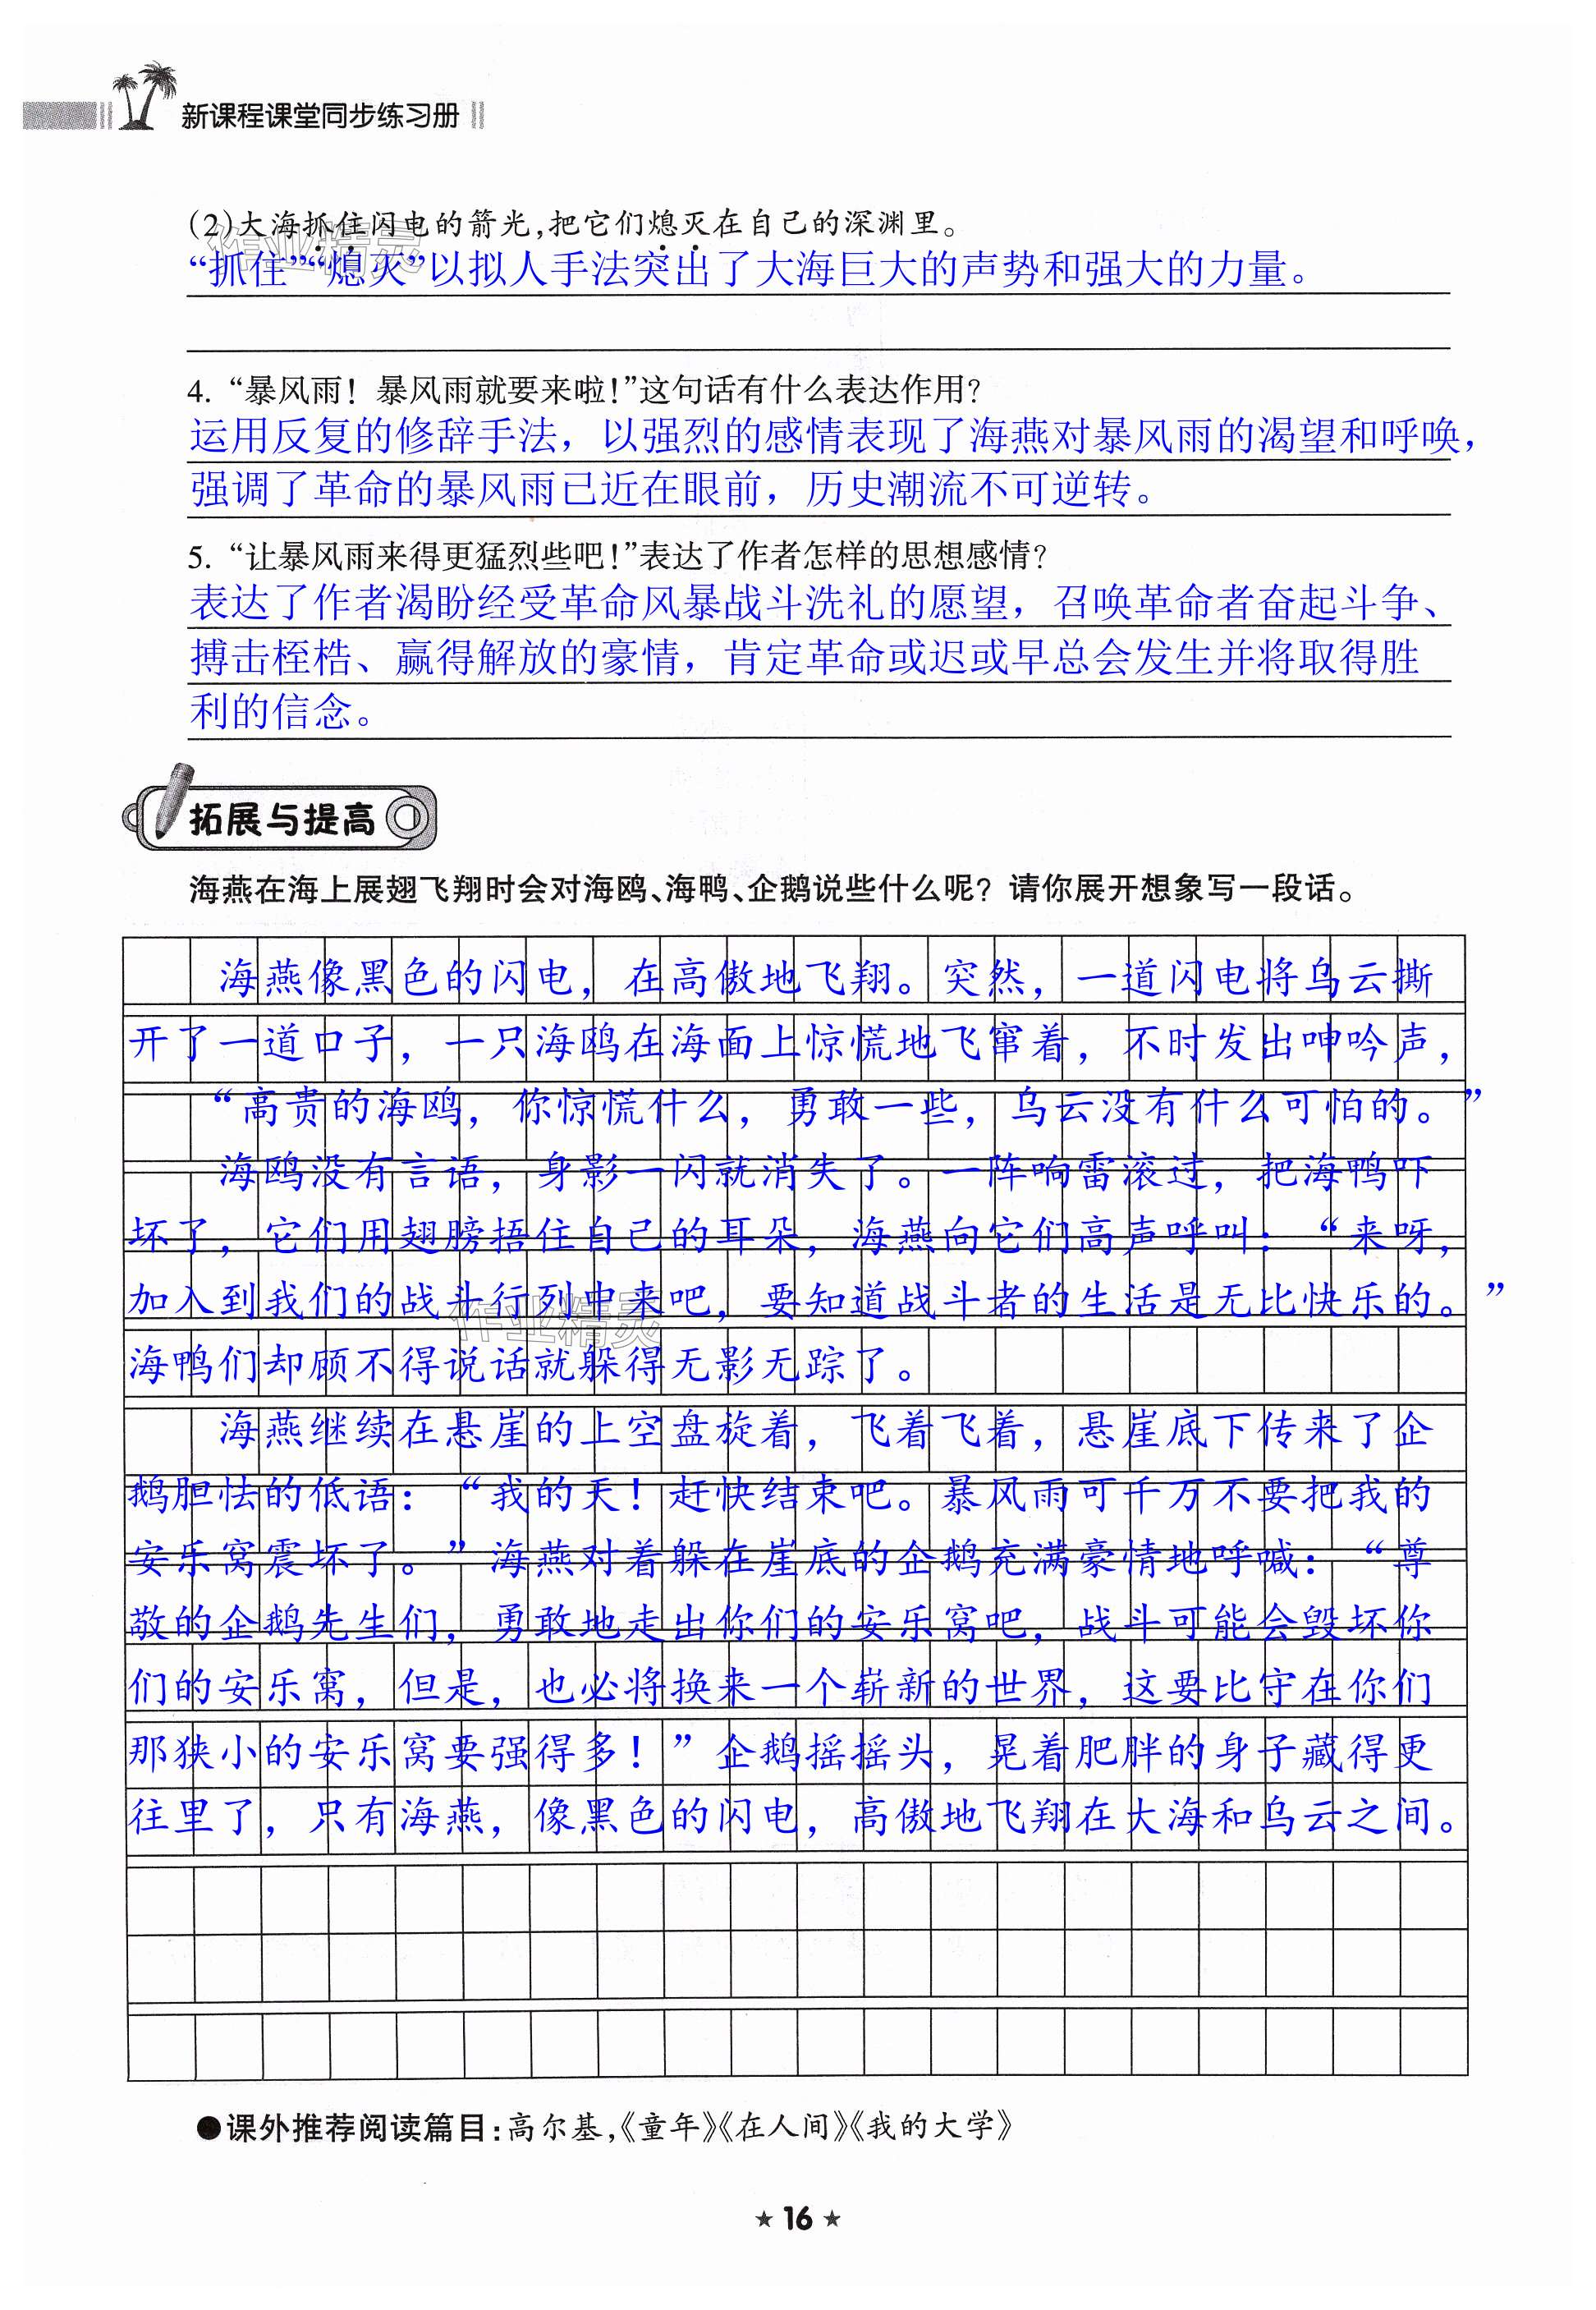 新课程课堂同步练习册
(2)大海抓住闪电的箭光,把它们熄灭在自己的深渊里。
“抓住”“熄灭”以拟人手法突出了大海巨大的声势和强大的力量。
4. “暴风雨！暴风雨就要来啦！”这句话有什么表达作用？
运用反复的修辞手法，以强烈的感情表现了海燕对暴风雨的渴望和呼唤，
强调了革命的暴风雨已近在眼前，历史潮流不可逆转。
5. “让暴风雨来得更猛烈些吧！”表达了作者怎样的思想感情？
表达了作者渴盼经受革命风暴战斗洗礼的愿望，召唤革命者奋起斗争、
搏击桎梏、赢得解放的豪情，肯定革命或迟或早总会发生并将取得胜
利的信念。
拓展与提高
海燕在海上展翅飞翔时会对海鸥、海鸭、企鹅说些什么呢？请你展开想象写一段话。
海燕像黑色的闪电，在高傲地飞翔。突然，一道闪电将乌云撕
开了一道口子，一只海鸥在海面上惊慌地飞窜着，不时发出呻吟声，
“高贵的海鸥，你惊慌什么，勇敢一些，乌云没有什么可怕的。”
海鸥没有言语，身影一闪就消失了。一阵响雷滚过，把海鸭吓
坏了，它们用翅膀捂住自己的耳朵，海燕向它们高声呼叫：“来呀，
加入到我们的战斗行列中来吧，要知道战斗者的生活是无比快乐的。”
海鸭们却顾不得说话就躲得无影无踪了。
海燕继续在悬崖的上空盘旋着，飞着飞着，悬崖底下传来了企
鹅胆怯的低语：“我的天！赶快结束吧。暴风雨可千万不要把我的
安乐窝震坏了。”海燕对着躲在崖底的企鹅充满豪情地呼喊：“尊
敬的企鹅先生们，勇敢地走出你们的安乐窝吧，战斗可能会毁坏你
们的安乐窝，但是，也必将换来一个崭新的世界，这要比守在你们
那狭小的安乐窝要强得多！”企鹅摇摇头，晃着肥胖的身子藏得更
往里了，只有海燕，像黑色的闪电，高傲地飞翔在大海和乌云之间。
●课外推荐阅读篇目：高尔基，《童年》《在人间》《我的大学》
★ 16 ★
作业精灵
作业精灵